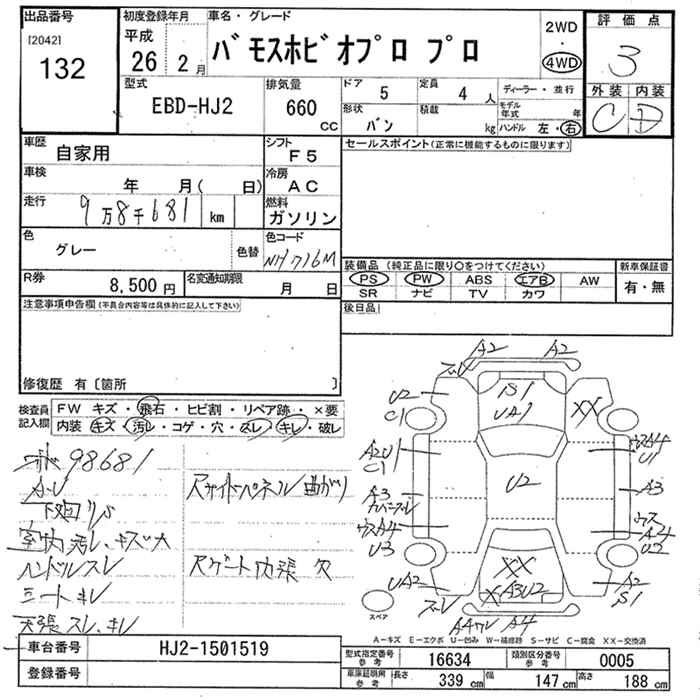 出品番号
[2042]
132
初度登録年月
平成
26 2月
車名・グレード
バモスホビオプロ プロ
2WD
・
4WD
評価点
3
外装 内装
C D
型式
EBD-HJ2
排気量
660
cc
ドア
5
定員
4 人
形状
バン
積載
kg
ディーラー・並行
モデル年式 年
ハンドル 左・右
車歴
自家用
シフト
F5
車検
年 月( 日)
冷房
AC
走行
9万8千681 km
燃料
ガソリン
色
グレー
色替
色コード
NH716M
R券
8,500円
名変通知期限
月 日
セールスポイント(正常に機能するものに限ります)
装備品 (純正品に限り○をつけてください)
PS PW ABS エアB AW
SR ナビ TV カワ
新車保証書
有・無
後日品
注意事項申告欄(不具合内容等は具体的に記入して下さい)
修復歴 有〔箇所 〕
検査員記入欄
FW キズ・飛石・ヒビ割・リペア跡・×要
内装 キズ・汚レ・コゲ・穴・スレ・キレ・破レ
98681
下廻り
室内汚レ、キズ大
ハンドルスレ
シートキレ
天張スレ、キレ
Rサイドパネル曲がり
Rゲート内張欠
A2 A2
S1
UA1
XX
U2
C1
A2U1
C1
A3
カバースレ
ウスA4
U3
UA2
U2
ウスA4
U1
A3
ウス
A4
U2
A2
S1
XX
XA3U2
A4
スペア
A−キズ E−エクボ U−凹み W−補修跡 S−サビ C−腐食 XX−交換済
車台番号
HJ2-1501519
登録番号
型式指定番号
参考
16634
類別区分番号
参考
0005
車庫証明用
参考
長さ
339 cm
幅
147 cm
高さ
188 cm